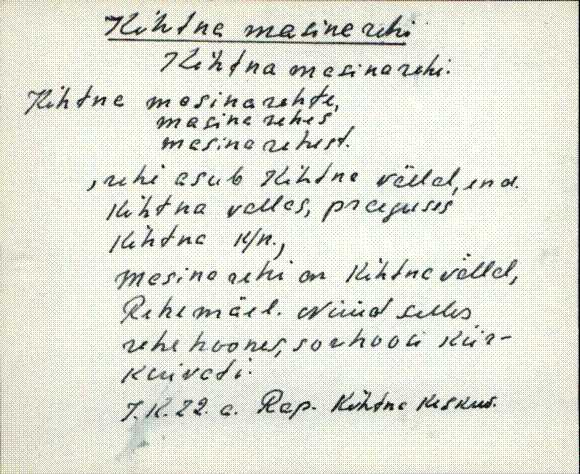 Kõhtna masinarehi
Kõhtna masinarehi.
Kõhtna masinarehte,
masinarehes
masinarehest.
, rehi asub Kõhtna vällal, end.
Kõhtna vallas, praeguses
Kõhtna k/n.,
masinarehi on Kõhtna vällal,
Rehemäel. Nüüd selles
rehehoones, sovhoosi kiir-
kuivati.
J.K. 22. a. Rap. Kõhtna keskus.